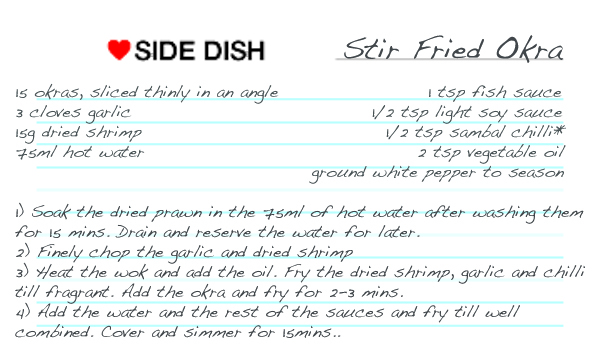 ❤ SIDE DISH
Stir Fried Okra
15 okras, sliced thinly in an angle
3 cloves garlic
15g dried shrimp
75ml hot water
1 tsp fish sauce
1/2 tsp light soy sauce
1/2 tsp sambal chilli*
2 tsp vegetable oil
ground white pepper to season
1) Soak the dried prawn in the 75ml of hot water after washing them
for 15 mins. Drain and reserve the water for later.
2) Finely chop the garlic and dried shrimp
3) Heat the wok and add the oil. Fry the dried shrimp, garlic and chilli
till fragrant. Add the okra and fry for 2-3 mins.
4) Add the water and the rest of the sauces and fry till well
combined. Cover and simmer for 15mins..